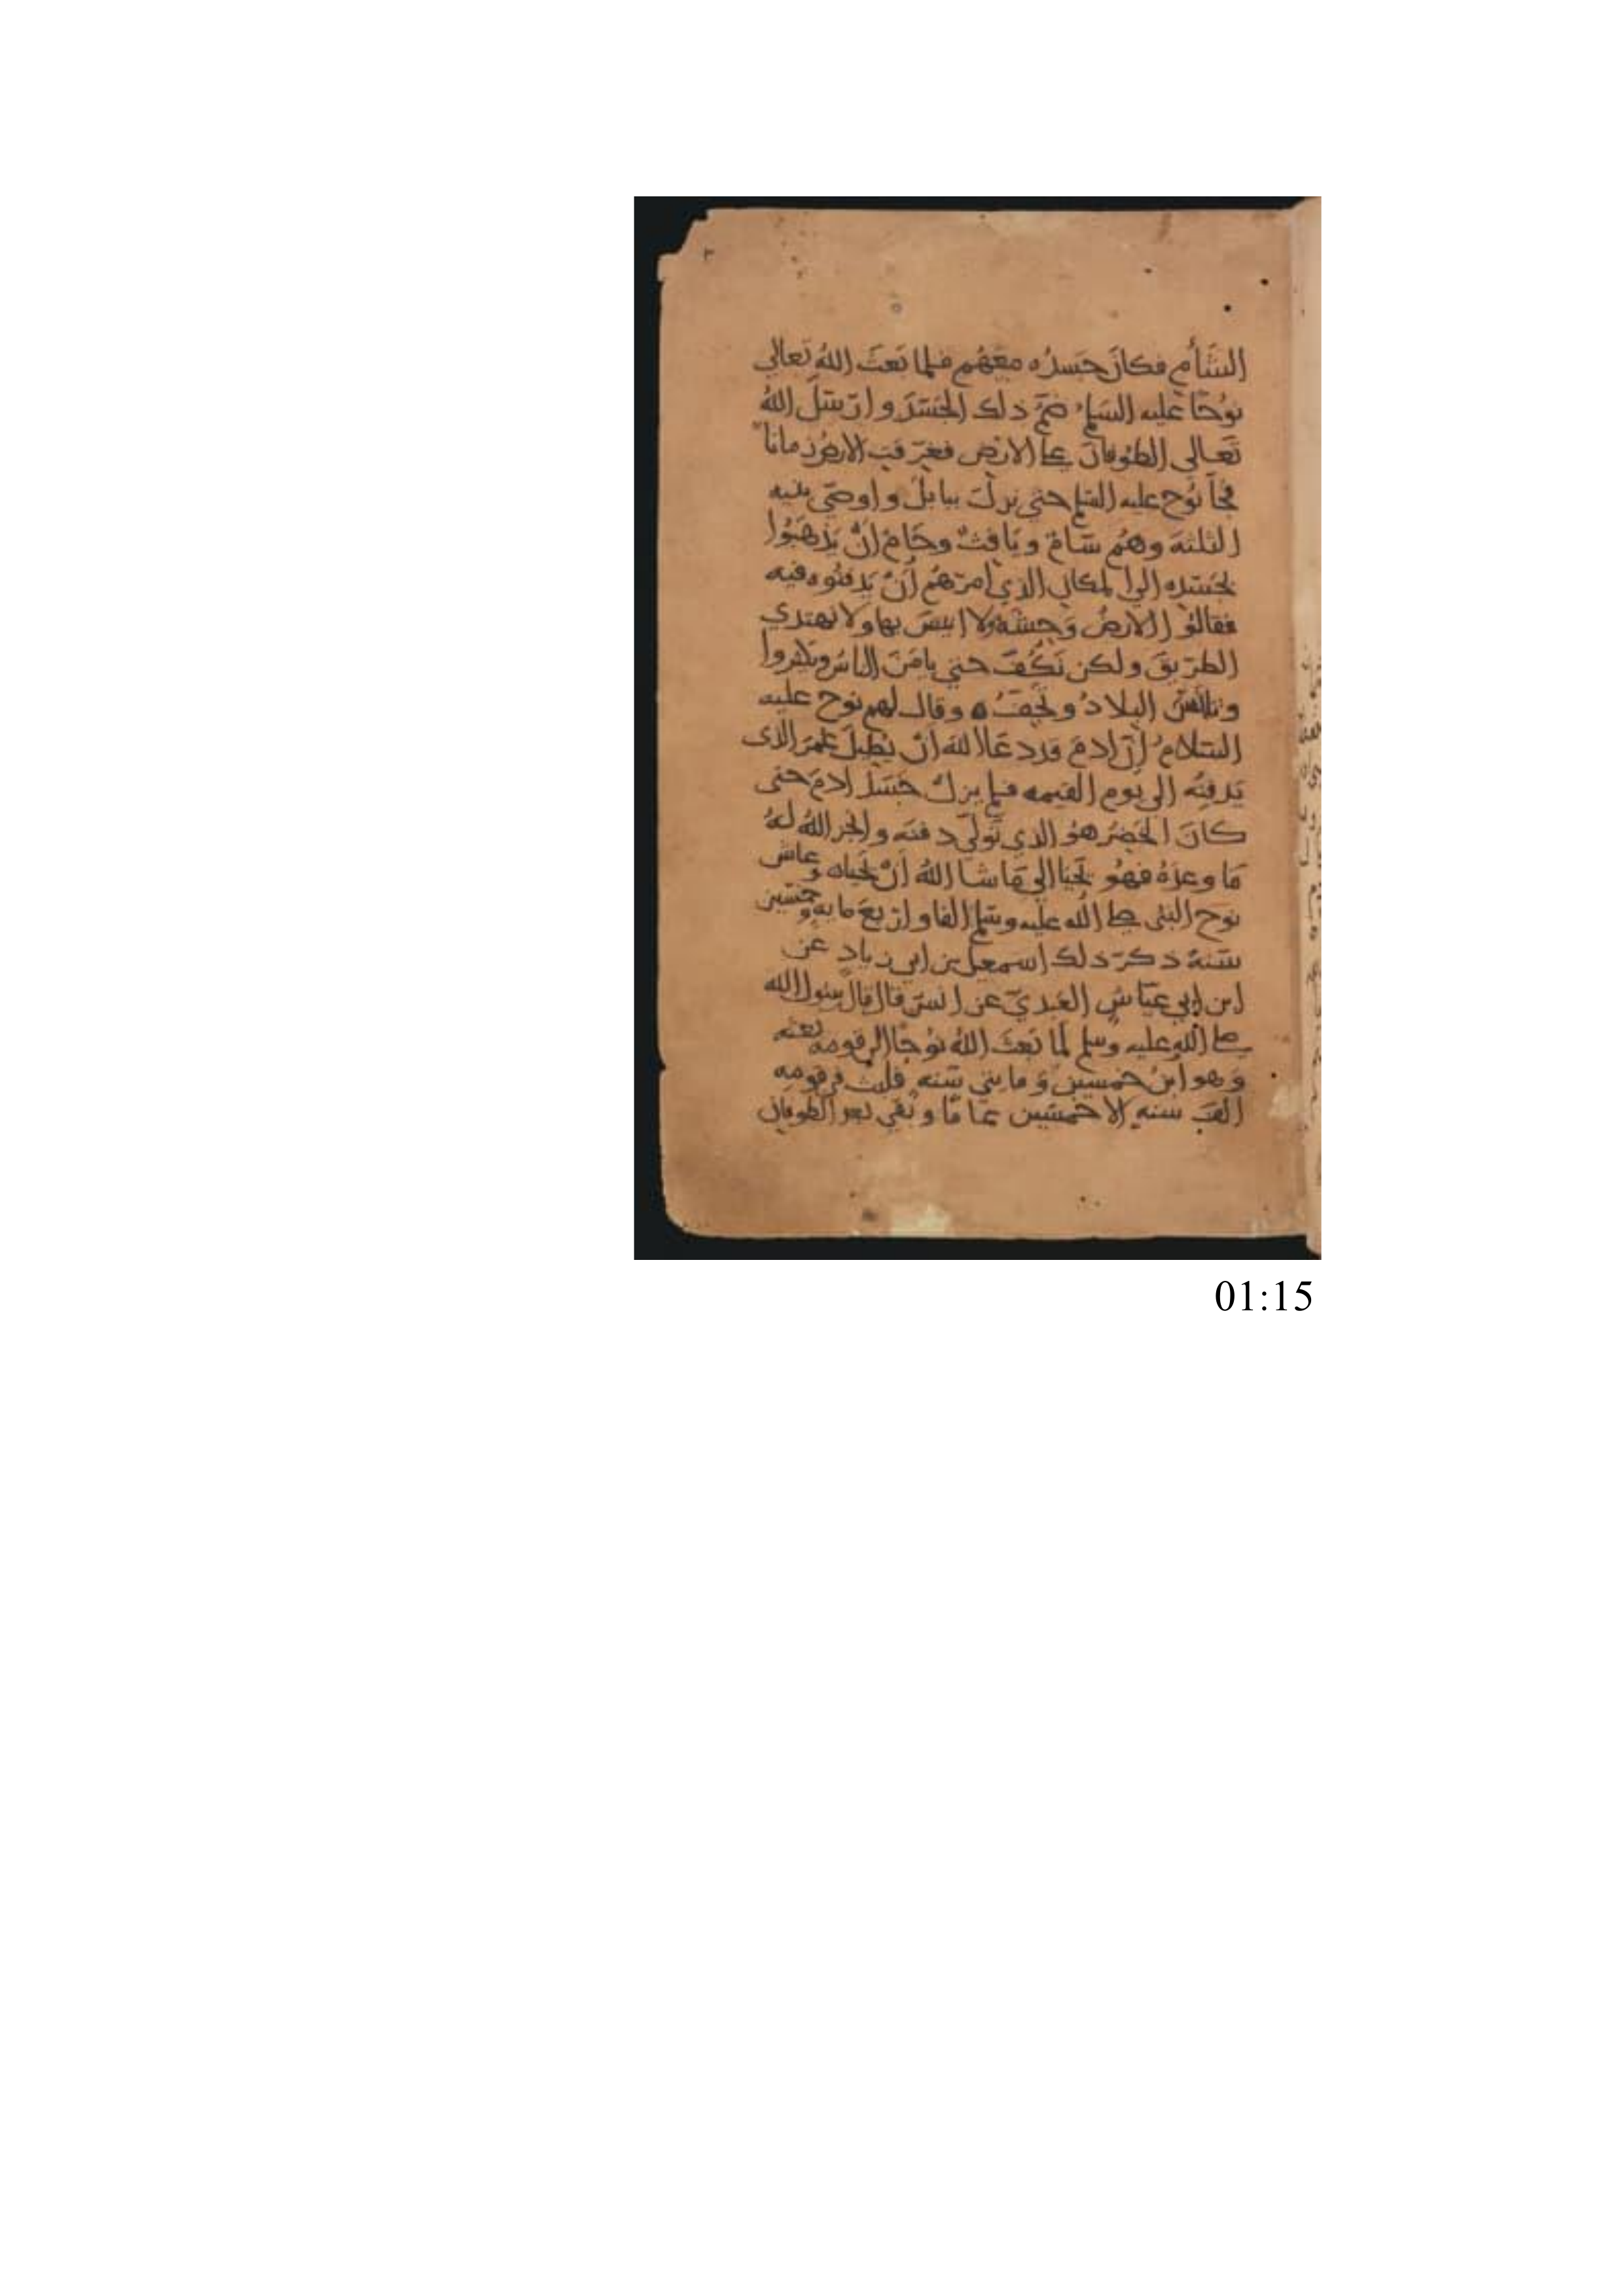 ٢
الشأم فكان جسده معهم فلما بَعثَ اللهُ تعالي
نُوحًا عليه السلم ضم ذلك الجسَدَ وارسَلَ اللهُ
تَعالي الطوفانَ علي الارض فغرقت الارضُ زمانا
فجآ نُوح عليه السلم حتي نزلَ ببابل واوصي بنيه
الثلثة وهُم سَام ويَافث وحَام انْ يَذهَبُوا
بجسَدِه الي المكان الذي امرَهُم أنْ يَدفنُوه فيه
فقالوُا الارضُ وَحِشة ولا انيسَ بها ولا نهتدي
الطريقَ ولكن نَكُفّ حتي يامَنَ الناسُ ويكثروا
وتانس البلادُ وتجفّ ه وقال لهم نوح عليه
السّلامُ إنّ ادمَ قد دعَا الله أنْ يُطيلَ عُمرَ الذى
يَدفِنُه الي يَوم القيمه فلم يزلْ جَسَدُ ادمَ حتى
كانَ الخضِرُ هوُ الذي تَولّي دفنَه وانجز اللهُ لهُ
مَا وعدَهُ فهُو يَحيَا الي مَا شا اللهُ أنْ يحياه وعاش
نوح النبى صلي الله عليه وسلم الفا واربعَ مايه وخمسين
سَنةً ذكرَ ذلك اسمعيل بن ابي زياد عن
ابن ابي عيّاش العَبديّ عن انس قال قال رسُول الله
صلي الله عليه وسلم لمّا بَعثَ اللهُ نُوحًا الي قومه بعثه
وَهو ابنُ خمسينَ ومايتي سَنه فلبث في قومِه
الفَ سنه الا خمسين عامًا وبَقي بعد الطوفان
01:15